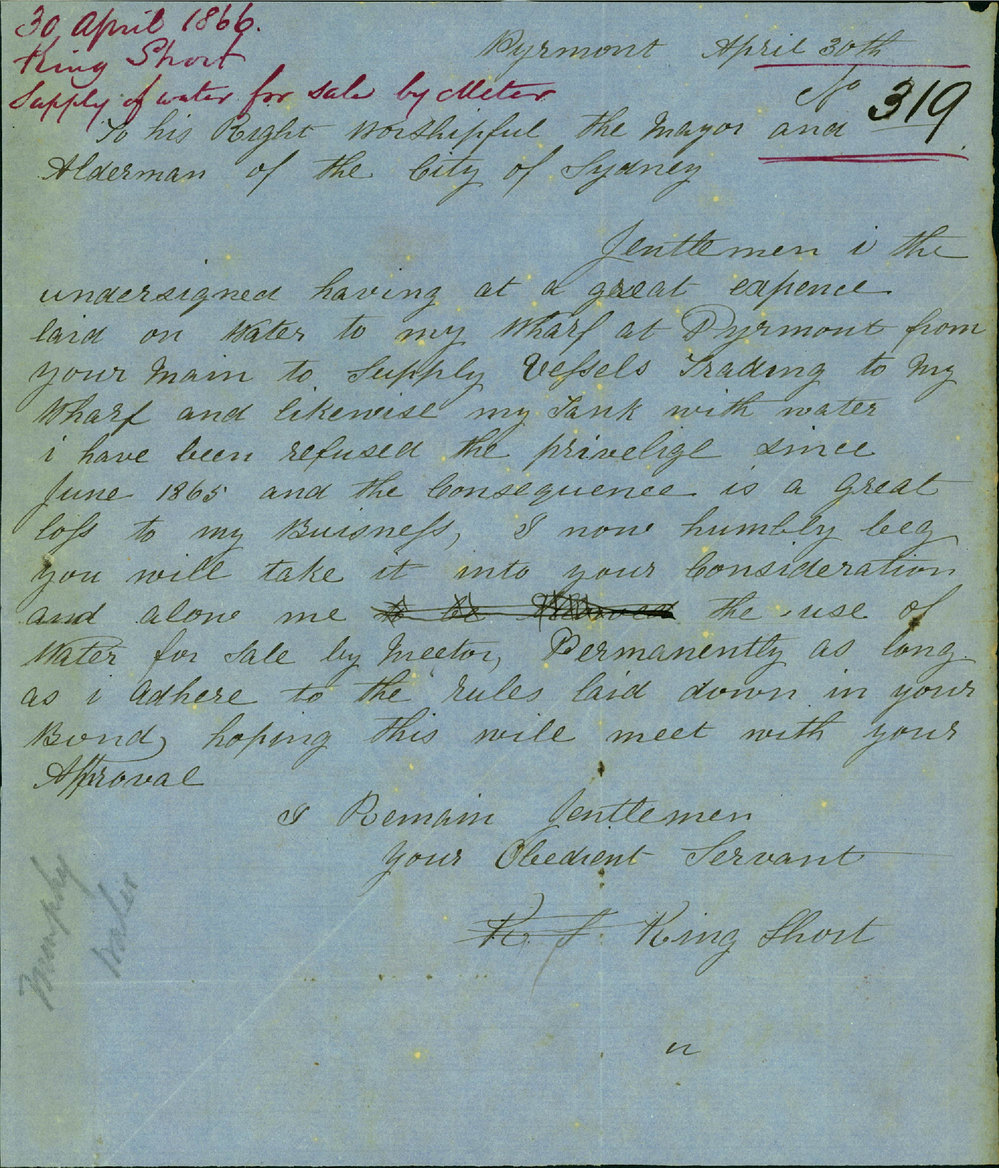 30 April 1866.
King Short
Supply of water for sale by Meter
Pyrmont April 30th
No 319
To his Right Worshipful the Mayor and
Alderman of the City of Sydney
Gentlemen i the
undersigned having at a great expence
laid on Water to my Wharf at Pyrmont from
your Main to Supply Vessels Trading to My
Wharf and likewise my Tank with water
i have been refused the privelige since
June 1865 and the Consequence is a great
loss to my Buisness, I now humbly beg
you will take it into your Consideration
and alow me the use of
Water for Sale by Meetor, Permanently as long
as i Adhere to the rules laid down in your
Bond, hoping this will meet with your
Approval
I Remain Gentlemen
Your Obedient Servant
K. S. King Short
Murphy
Water